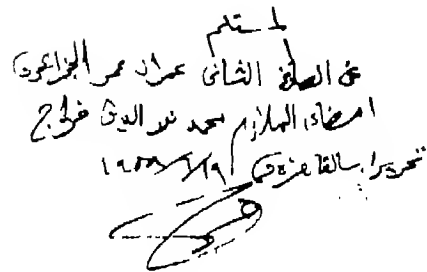 المستلم
عن الطرف الثانى عمران عمر الجزائرى
امضاء الملازم محمد نور الدين فراج
تحريرا بالقاهرة